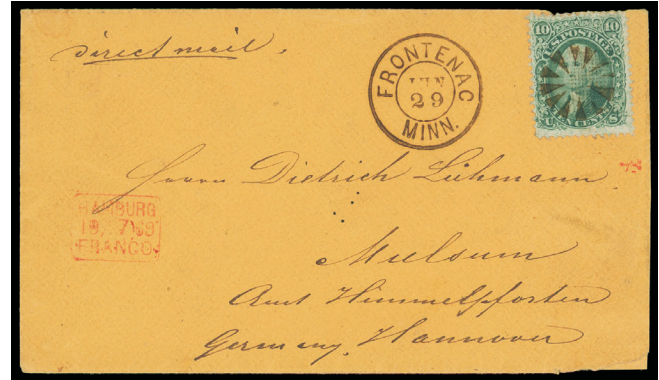 direct mail.
FRONTENAC
JUN
29
MINN.
10 U.S. POSTAGE 10
U TEN CENTS S
Herrn Dietrich Lühmann
HAMBURG
19. 7 69
FRANCO.
Mulsum
Amt Himmelpforten
Germany, Hannover